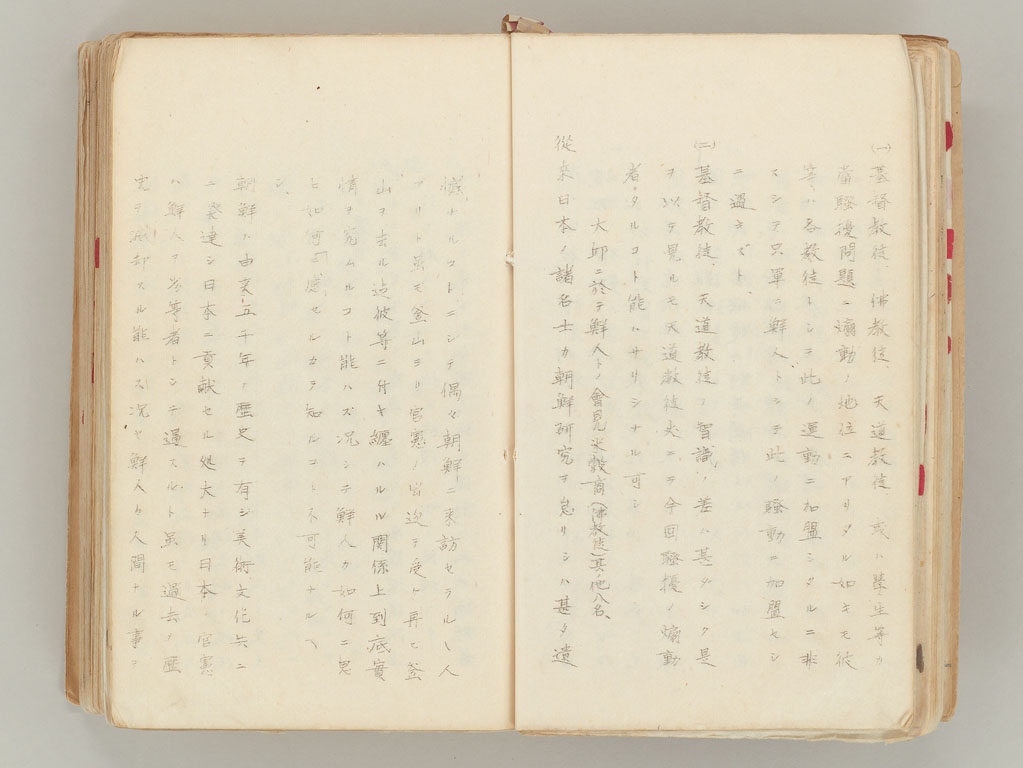 (一)基督教徒、佛教徒、天道教徒、或ハ學生等カ
當騒擾問題ニ煽動ノ地位ニアリタル如キモ彼
等ハ各教徒トシテ此ノ運動ニ加盟シタルニ非
スシテ只單ニ鮮人トシテ此ノ騒動ニ加盟セシ
ニ過キズト、
(二)基督教徒ト天道教徒ノ智識ノ差ハ甚ダシク是
ヲ以テ見ルモ天道教徒夫ニテ今回騒擾ノ煽動
者タルコト能ハサリシナル可シ
大邱ニ於テ鮮人トノ會見 米穀商(佛教徒)其他八名、
從来日本ノ諸名士カ朝鮮研究ヲ怠リシハ甚タ遺
憾ナルコトニシテ偶々朝鮮ニ来訪セラルヽ人
アリト虽モ釜山ヨリ官憲ノ出迎ヲ受ケ再ヒ釜
山ヲ去ル迄彼等ニ付キ纏ハルル関係上到底實
情ヲ究ムルコト能ハズ况シテ鮮人カ如何ニ思
ヒ如何ニ感セルカヲ知ルコト不可能ナルヘ
シ、
朝鮮ハ由来五千年ノ歴史ヲ有シ美術文化共ニ
発達シ日本ニ貢献セル処大ナリ日本ノ官憲
ハ鮮人ヲ劣等者トシテ遇スルト虽モ過去ノ歴
史ヲ滅却スル能ハス况ヤ鮮人タ人間ナル事ヲ